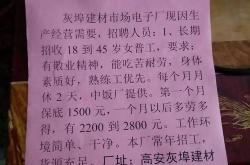 灰埠建材市场电子厂现因生
产经营需要，招聘人员：1、长
期招收 18 到 45 岁女普工，要求：
有敬业精神，能吃苦耐劳，身体
素质好，熟练工优先。每个月月
休 2 天，中饭厂提供。第一个月
保底 1500 元，一个月以后多劳多
得，有 2200 到 2800 元。工作环
境简单、干净。本厂常年招工，
货源充足。厂址：高安灰埠建材